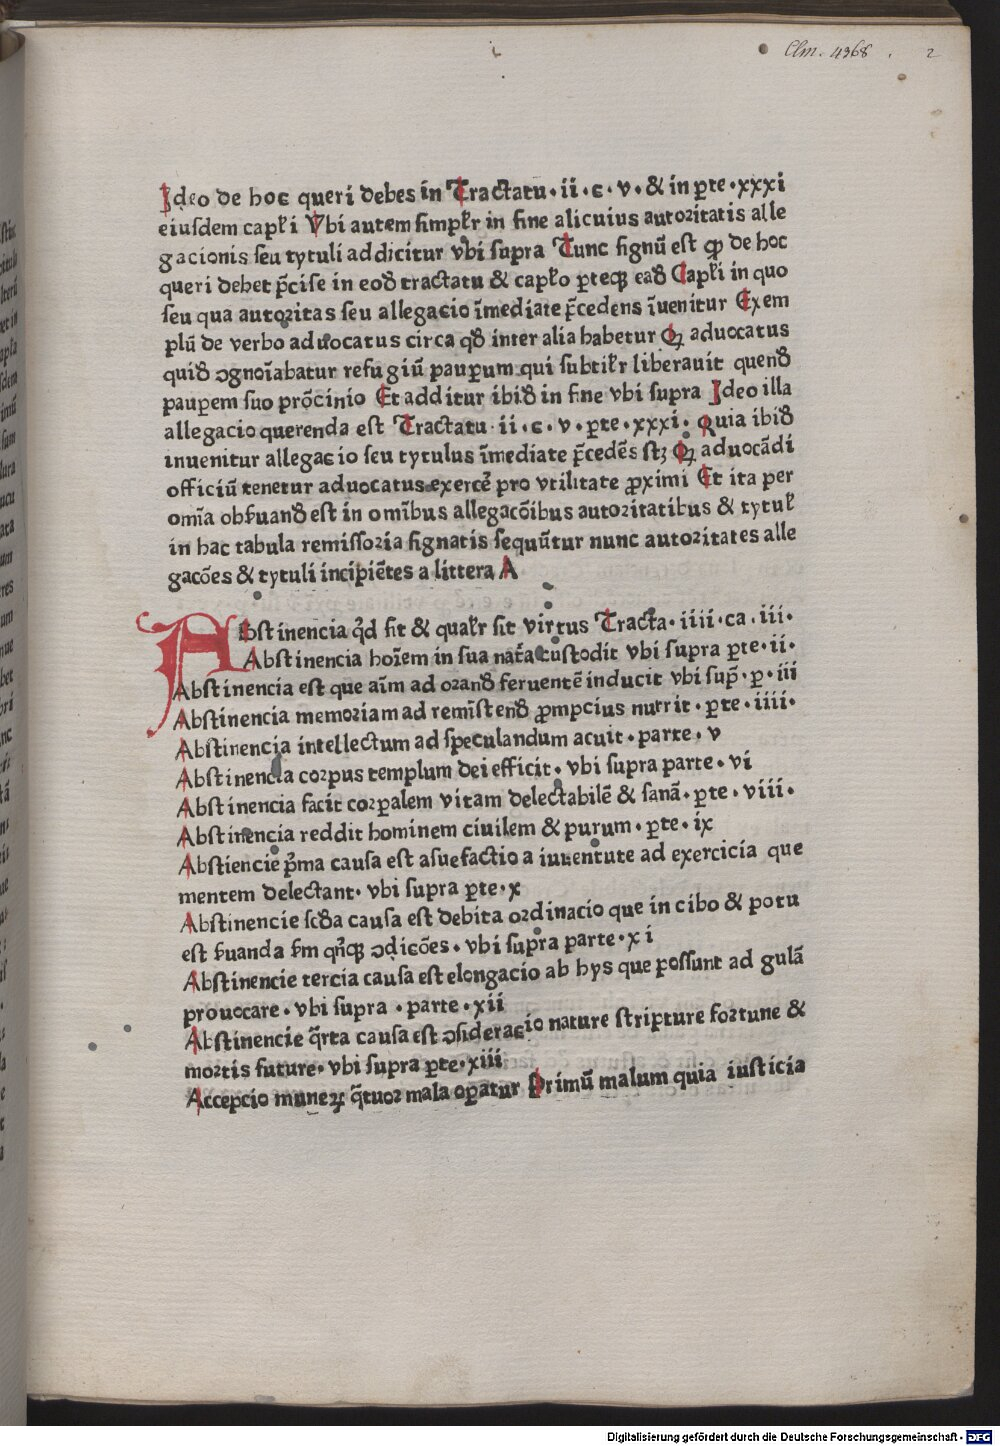 Clm. 4368. 2
Ideo de hoc queri debes in Tractatu · ii · c · v · & in ꝑte · xxxi
eiusdem capłi Vbi autem simpłr in fine alicuius autoꝛitatis alle
gacionis seu tytuli addicitur vbi supra Tunc signū est ꝙ de hoc
queri debet p̄cise in eoď tractatu & capło ꝑteqꝫ eaď Capłi in quo
seu qua autoꝛitas seu allegacio īmediate p̄cedens īuenitur Exem
plū de verbo aduocatus circa qď inter alia habetur Qꝫ aduocatus
quiď ꝯgnoīabatur refugiū pauꝑum qui subtiłr liberauit quenď
pauꝑem suo pro̅cinio Et additur ibiď in fine vbi supra Ideo illa
allegacio querenda est Tractatu · ii · c · v · ꝑte · xxxi · Quia ibiď
inuenitur allegacio seu tytulus īmediate p̄cedēs stꝫ Qꝫ aduocādi
officiū tenetur aduocatus exercē pro vtilitate ꝓximi Et ita per
omīa obẜuanď est in omībus allegacōibus autoꝛitatibus & tytuł
in hac tabula remissoꝛia signatis sequūtur nunc autoꝛitates alle
gacōes & tytuli incipiētes a littera A
Abstinencia qď sit & quałr sit virtus Tracta · iiii · ca · iii ·
Abstinencia hoīem in sua nat̄a custodit vbi supra ꝑte · ii ·
Abstinencia est que aīm ad oꝛanď feruentē inducit vbi sup̄ · ꝑ · iii
Abstinencia memoꝛiam ad remīstenď ꝓmpcius nutrit · ꝑte · iiii ·
Abstinencia intellectum ad speculandum acuit · parte · v
Abstinencia coꝛpus templum dei efficit · vbi supra parte · vi
Abstinencia facit coꝛꝑalem vitam delectabilē & sanā · ꝑte · viii ·
Abstinencia reddit hominem ciuilem & purum · ꝑte · ix
Abstiencie p̄ma causa est asuefactio a iuuentute ad exercicia que
mentem delectant · vbi supra ꝑte · x
Abstinencie scďa causa est debita oꝛdinacio que in cibo & potu
est ẜuanda ẜm qn̄qꝫ ꝯdicōes · vbi supra parte · xi
Abstinencie tercia causa est elongacio ab hys que possunt ad gulā
prouocare · vbi supra · parte · xii
Abstinencie q̄rta causa est ꝯsideracio nature scripture foꝛtune &
moꝛtis future · vbi supra ꝑte · xiii
Accepcio muneꝝ q̄tuoꝛ mala oꝑatur Primū malum quia iusticia
Digitalisierung gefördert durch die Deutsche Forschungsgemeinschaft - DFG